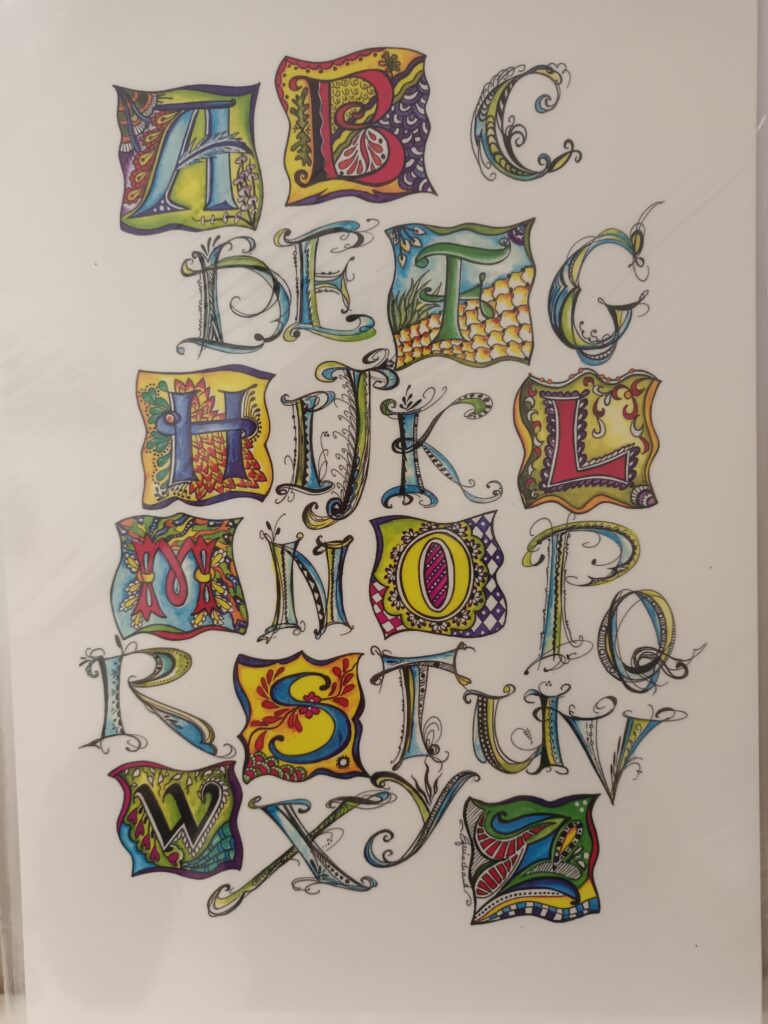 A B C
D E F G
H I J K L
M N O P Q
R S T U V
W X Y Z